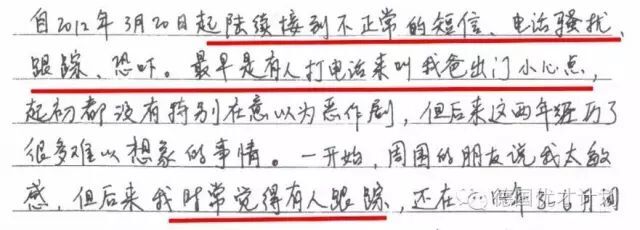 自2012年3月20日起陆续接到不正常的短信、电话骚扰、
跟踪、恐吓。最早是有人打电话来叫我爸出门小心点,
起初都没有特别在意以为恶作剧,但后来这两年经历了
很多难以想象的事情。一开始,周围的朋友说我太敏
感,但后来我时常觉得有人跟踪,还在 年 月间
德国优才计划